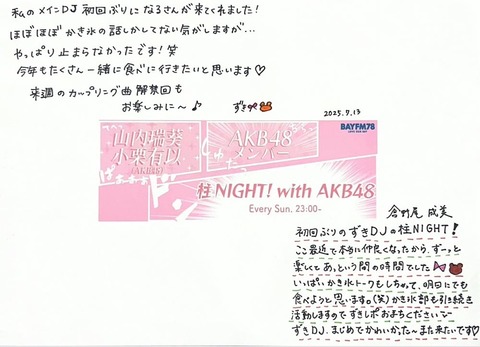 私のメインDJ初回ぶりになるさんが来てくれました!
ほぼほぼかき氷の話しかしてない気がしますが…
やっぱり止まらなかったです!笑
今年もたくさん一緒に食べに行きたいと思います♡
来週のカップリング曲解禁回も
お楽しみに〜♪
ずき
2025.7.13
BAYFM78
山内瑞葵
小栗有以
(AKB48)
AKB48
メンバー
柱NIGHT! with AKB48
Every Sun. 23:00-
倉野尾 成美
初回ぶりのずきDJの柱NIGHT!
ここ最近で本当に仲良くなったから、ずーっと
楽しくてあっという間の時間でした
いっぱいかき氷トークもしちゃって、明日にでも
食べようと思います。(笑)かき氷部も引き続き
活動しますのでずきレポおまちくださいで
ずきDJ、まじめでかわいかった〜また来たいです♡